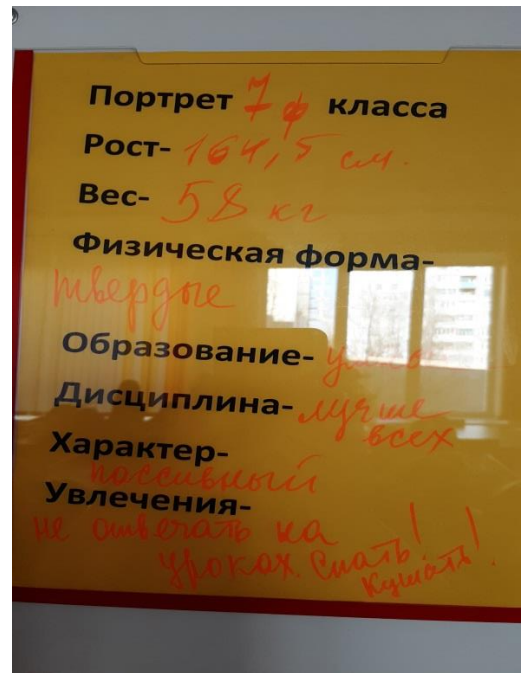 Портрет 7 ф класса
Рост- 164,5 см.
Вес- 58 кг
Физическая форма-
твердые
Образование-
Дисциплина- лучше
всех
Характер-
пассивный
Увлечения-
не отвечать на
уроках. Спать!
Кушать!